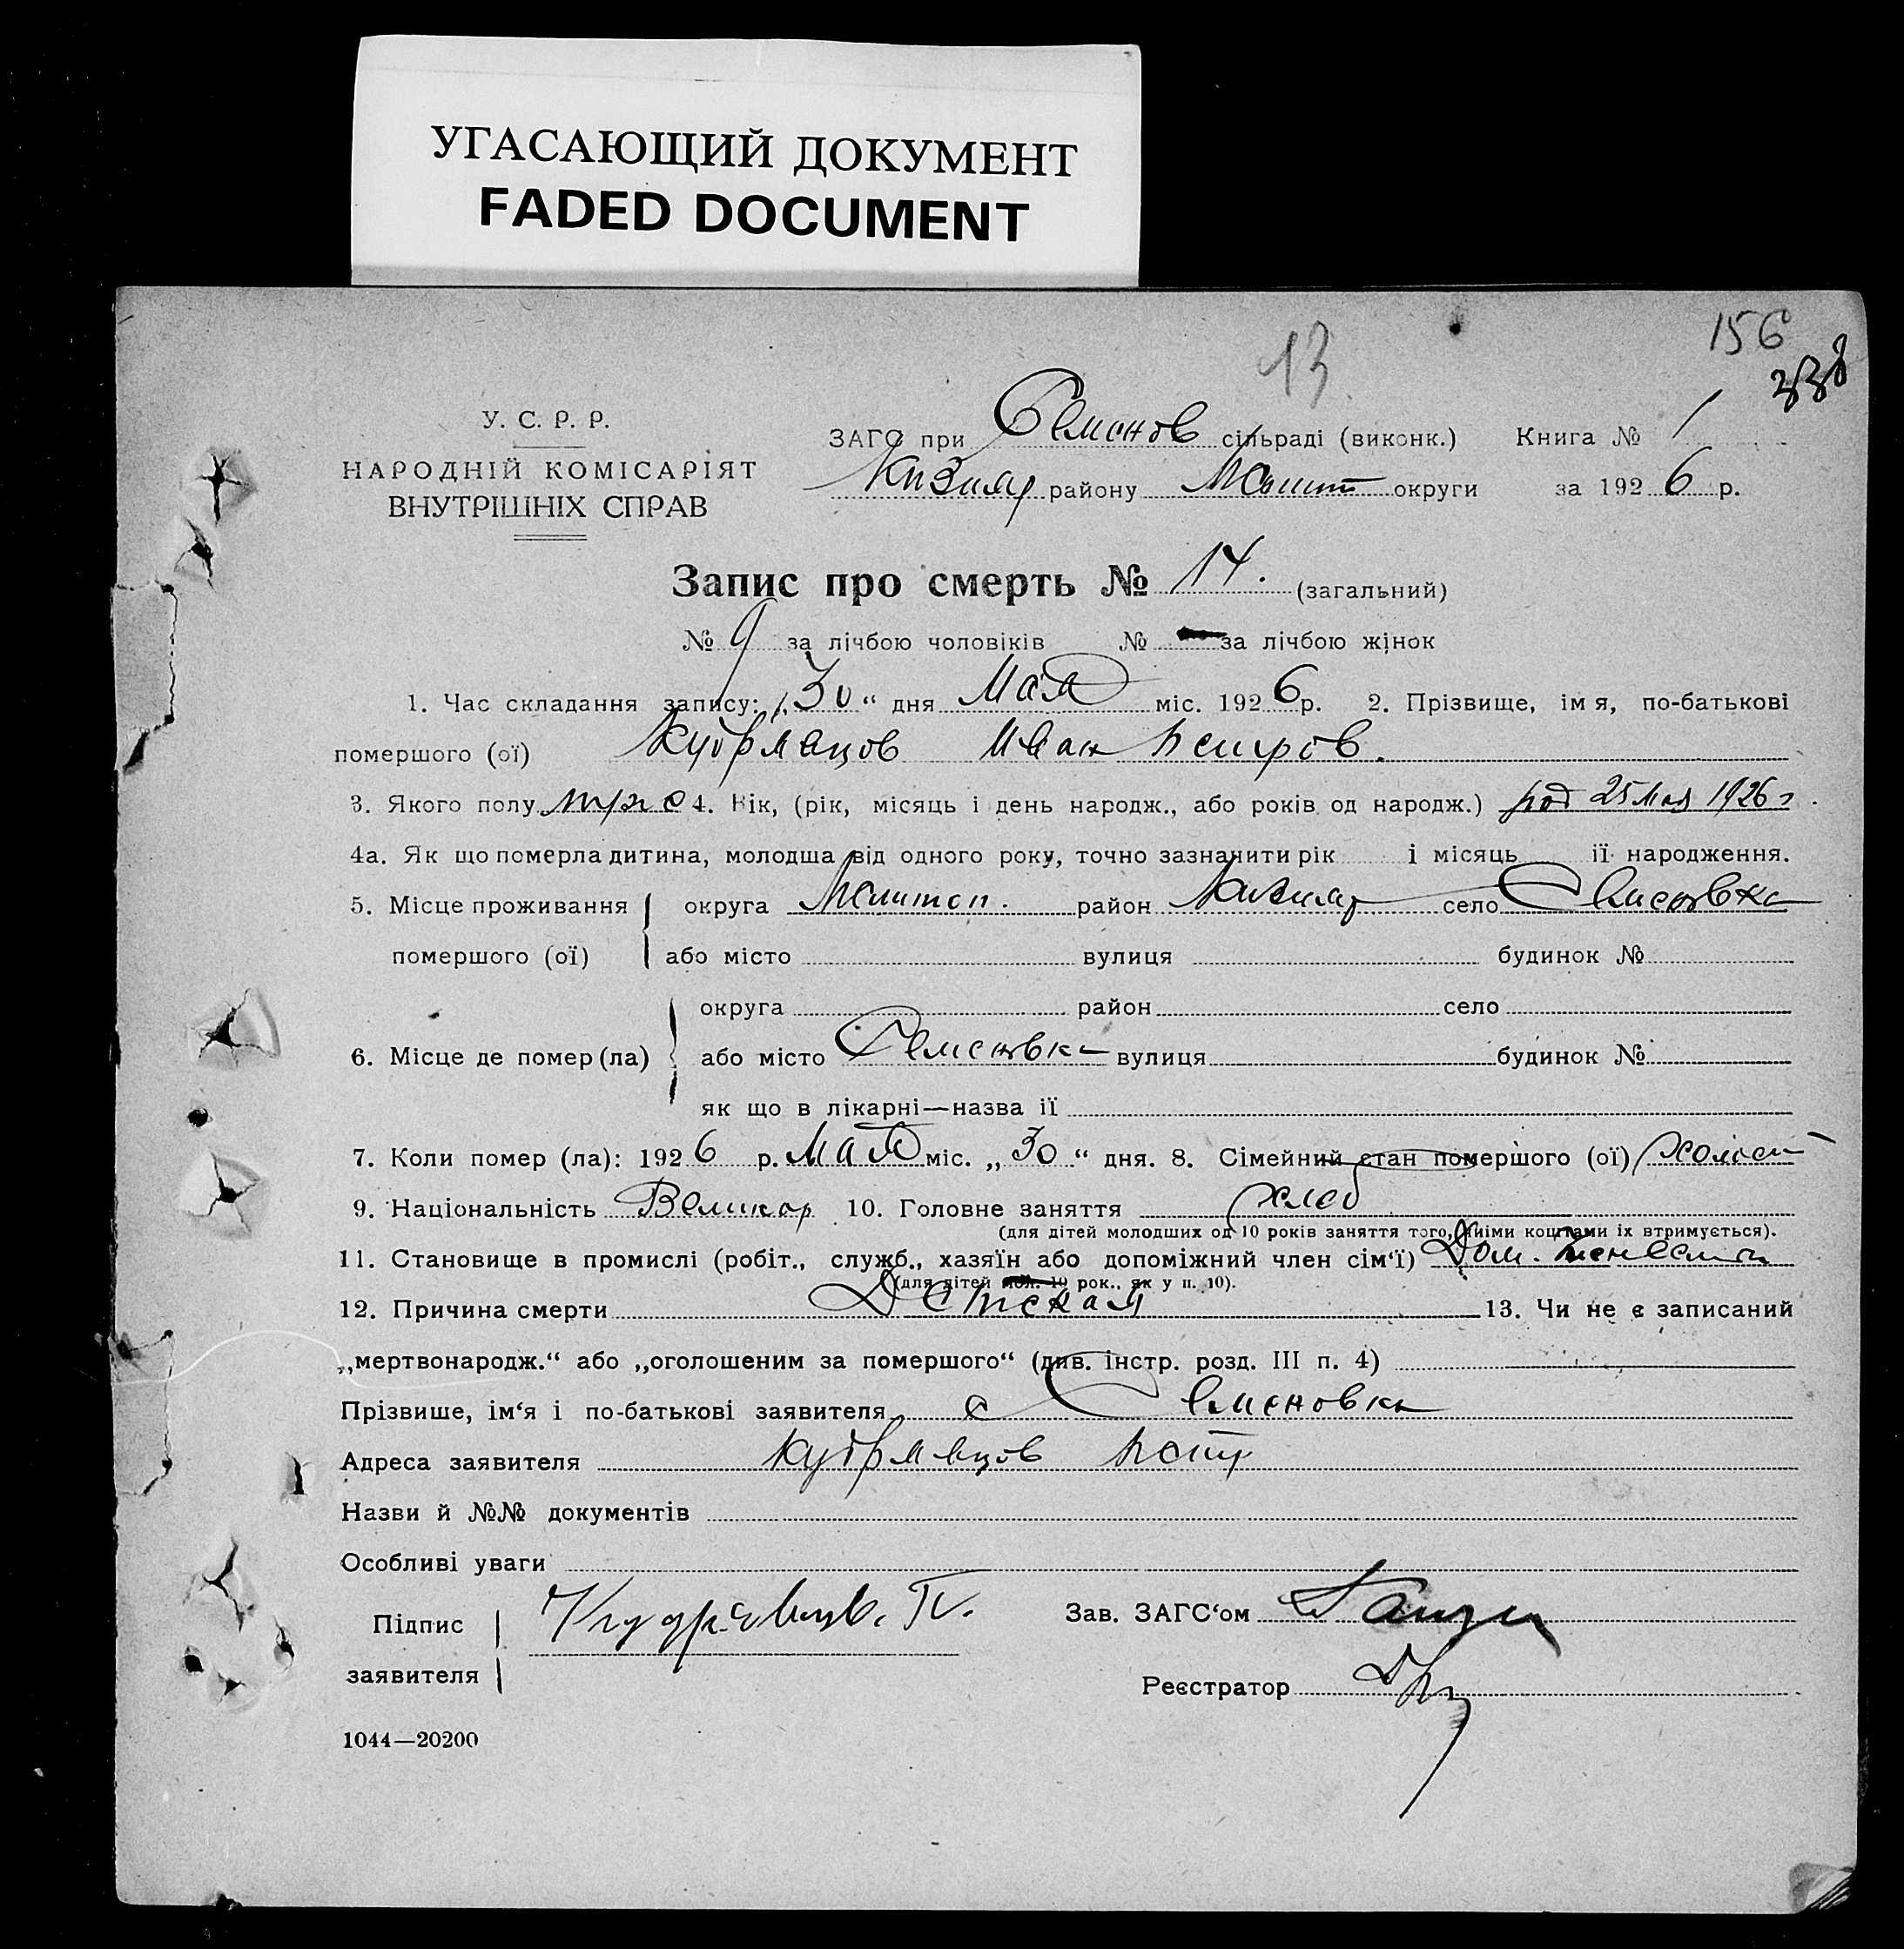 УГАСАЮЩИЙ ДОКУМЕНТ
FADED DOCUMENT
156
13
338
У. С. Р. Р.
НАРОДНІЙ КОМІСАРІЯТ
ВНУТРІШНІХ СПРАВ
ЗАГС при Семенов сільраді (виконк.) Книга № 1
Кизияр району Мелит округи за 1926 р.
Запис про смерть № 14. (загальний)
№ 9 за лічбою чоловіків № за лічбою жінок
1. Час складання запису: „30“ дня Мая міс. 1926 р. 2. Прізвище, імя, по-батькові
помершого (ої) Кудрявцов Иван Петров.
3. Якого полу муж 4. Вік, (рік, місяць і день народж., або років од народж.) род 25 Мая 1926 г.
4а. Як що померла дитина, молодша від одного року, точно зазначити рік і місяць її народження.
5. Місце проживання помершого (ої) округа Мелитоп. район Кизияр село Семеновка
або місто вулиця будинок №
6. Місце де помер (ла) округа район село
або місто Семеновка вулиця будинок №
як що в лікарні—назва її
7. Коли помер (ла): 1926 р. Мая міс. „30“ дня. 8. Сімейний стан помершого (ої) холост
9. Національність Великор 10. Головне заняття хлеб
(для дітей молодших од 10 років заняття того, чиїми коштами їх втримується).
11. Становище в промислі (робіт., служб., хазяїн або допоміжний член сім‘ї) Дом.
(для дітей мол. 10 рок., як у п. 10).
12. Причина смерти Детская 13. Чи не є записаний
„мертвонародж.“ або „оголошеним за помершого“ (див. інстр. розд. III п. 4)
Прізвише, ім‘я і по-батькові заявителя с Семеновка
Адреса заявителя Кудрявцов Петр
Назви й №№ документів
Особливі уваги
Підпис заявителя Кудрявцов. П.
Зав. ЗАГС‘ом
Реєстратор
1044—20200